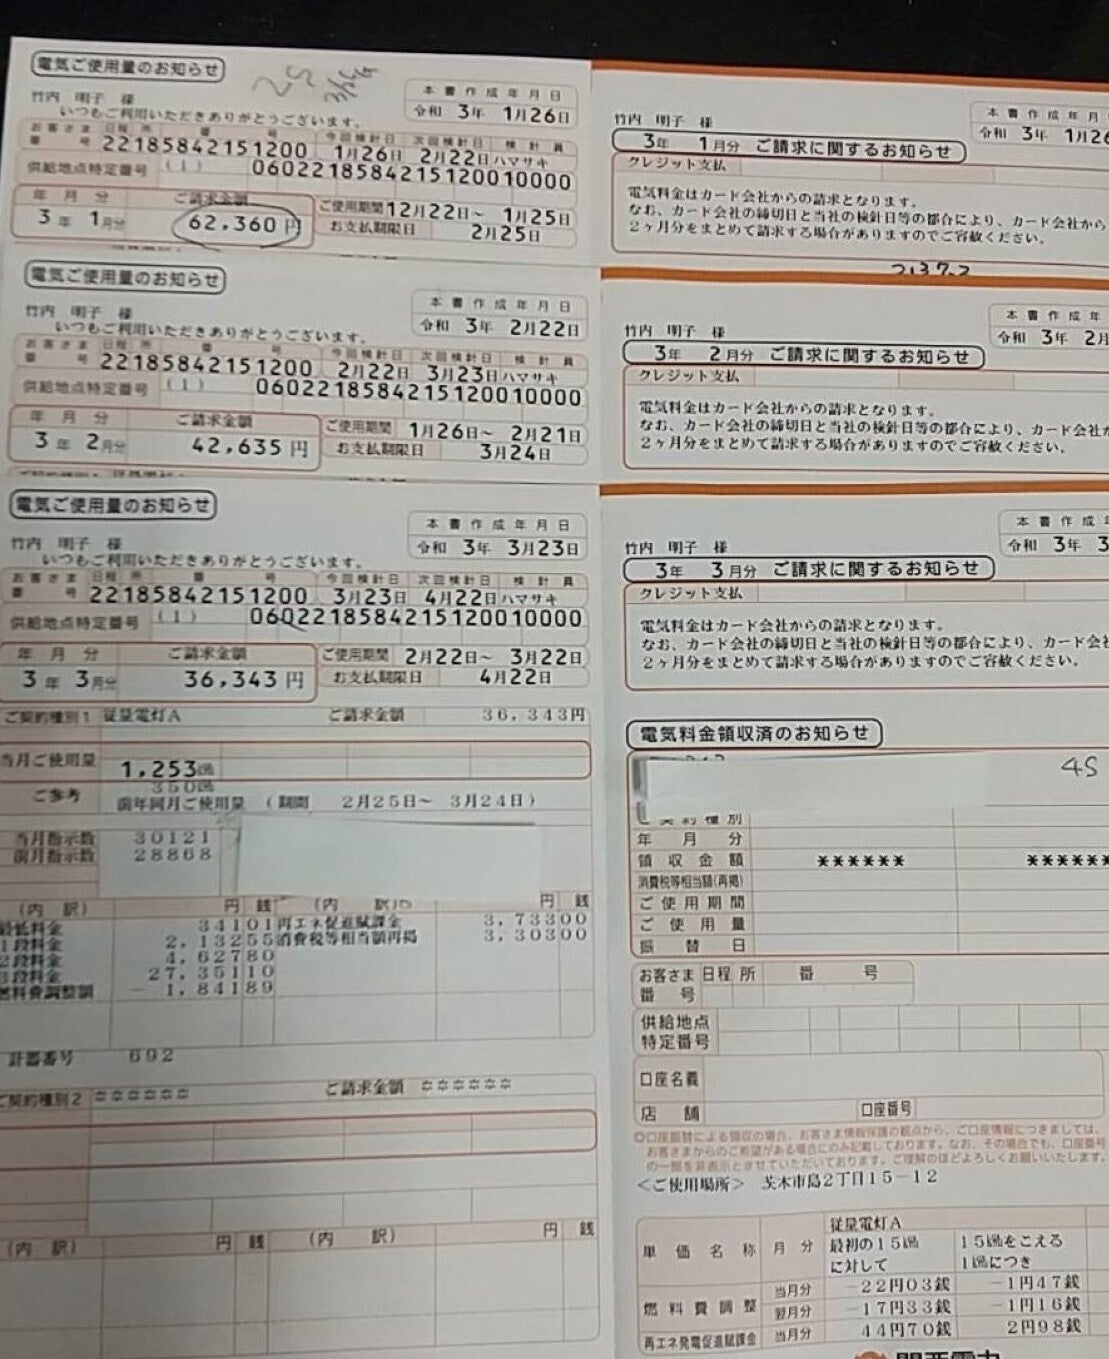 電気ご使用量のお知らせ
竹内 明子 様
いつもご利用いただきありがとうございます。
本書作成年月日
令和 3年 1月26日
お客さま番号 日程 所 番 号 今回検針日 次回検針日 検針員
22185842151200 1月26日 2月22日 ハマサキ
供給地点特定番号 (1) 0602218584215120010000
年 月 分 ご請求金額 ご使用期間 12月22日~ 1月25日
3年 1月分 62,360円 お支払期限日 2月25日
竹内 明子 様
本書作成年月
令和 3年 1月26
3年 1月分 ご請求に関するお知らせ
クレジット支払
電気料金はカード会社からの請求となります。
なお、カード会社の締切日と当社の検針日等の都合により、カード会社から
2ヶ月分をまとめて請求する場合がありますのでご容赦ください。
電気ご使用量のお知らせ
竹内 明子 様
いつもご利用いただきありがとうございます。
本書作成年月日
令和 3年 2月22日
お客さま番号 日程 所 番 号 今回検針日 次回検針日 検針員
22185842151200 2月22日 3月23日 ハマサキ
供給地点特定番号 (1) 0602218584215120010000
年 月 分 ご請求金額 ご使用期間 1月26日~ 2月21日
3年 2月分 42,635円 お支払期限日 3月24日
竹内 明子 様
本書作成年
令和 3年 2月
3年 2月分 ご請求に関するお知らせ
クレジット支払
電気料金はカード会社からの請求となります。
なお、カード会社の締切日と当社の検針日等の都合により、カード会社か
2ヶ月分をまとめて請求する場合がありますのでご容赦ください。
電気ご使用量のお知らせ
竹内 明子 様
いつもご利用いただきありがとうございます。
本書作成年月日
令和 3年 3月23日
お客さま番号 日程 所 番 号 今回検針日 次回検針日 検針員
22185842151200 3月23日 4月22日 ハマサキ
供給地点特定番号 (1) 0602218584215120010000
年 月 分 ご請求金額 ご使用期間 2月22日~ 3月22日
3年 3月分 36,343円 お支払期限日 4月22日
ご契約種別1 従量電灯A ご請求金額 36,343円
当月ご使用量 1,253kWh
350kWh
ご参考 前年同月ご使用量 (期間 2月25日~ 3月24日)
当月指示数 30121
前月指示数 28868
(内 訳) 円 銭 (内 訳) 円 銭
最低料金 34101 再エネ促進賦課金 3,73300
1段料金 2,13255 消費税等相当額再掲 3,30300
2段料金 4,62780
3段料金 27,35110
燃料費調整額 -1,84189
計器番号 692
ご契約種別2 ☆☆☆☆☆☆ ご請求金額 ☆☆☆☆☆☆
(内 訳) 円 銭 (内 訳) 円 銭
竹内 明子 様
本書作成年
令和 3年 3
3年 3月分 ご請求に関するお知らせ
クレジット支払
電気料金はカード会社からの請求となります。
なお、カード会社の締切日と当社の検針日等の都合により、カード会社
2ヶ月分をまとめて請求する場合がありますのでご容赦ください。
電気料金領収済のお知らせ
4S
ご契約種別
年 月 分
領収金額 ****** ******
消費税等相当額(再掲)
ご使用期間
ご使用量
振替日
お客さま番号 日程 所 番 号
供給地点特定番号
口座名義
店舗 口座番号
◎口座振替による領収の場合、お客さま情報保護の観点から、ご口座情報につきましては、
お客さまからのご希望がある場合にのみ記載しております。なお、その場合でも、口座番号
の一部を非表示とさせていただいております。ご理解のほどよろしくお願いいたします。
<ご使用場所> 茨木市島2丁目15-12
単価名称 月分 従量電灯A
最初の15kWhに対して 15kWhをこえる1kWhにつき
燃料費調整 当月分 -22円03銭 -1円47銭
翌月分 -17円33銭 -1円16銭
再エネ発電促進賦課金 当月分 44円70銭 2円98銭
関西電力